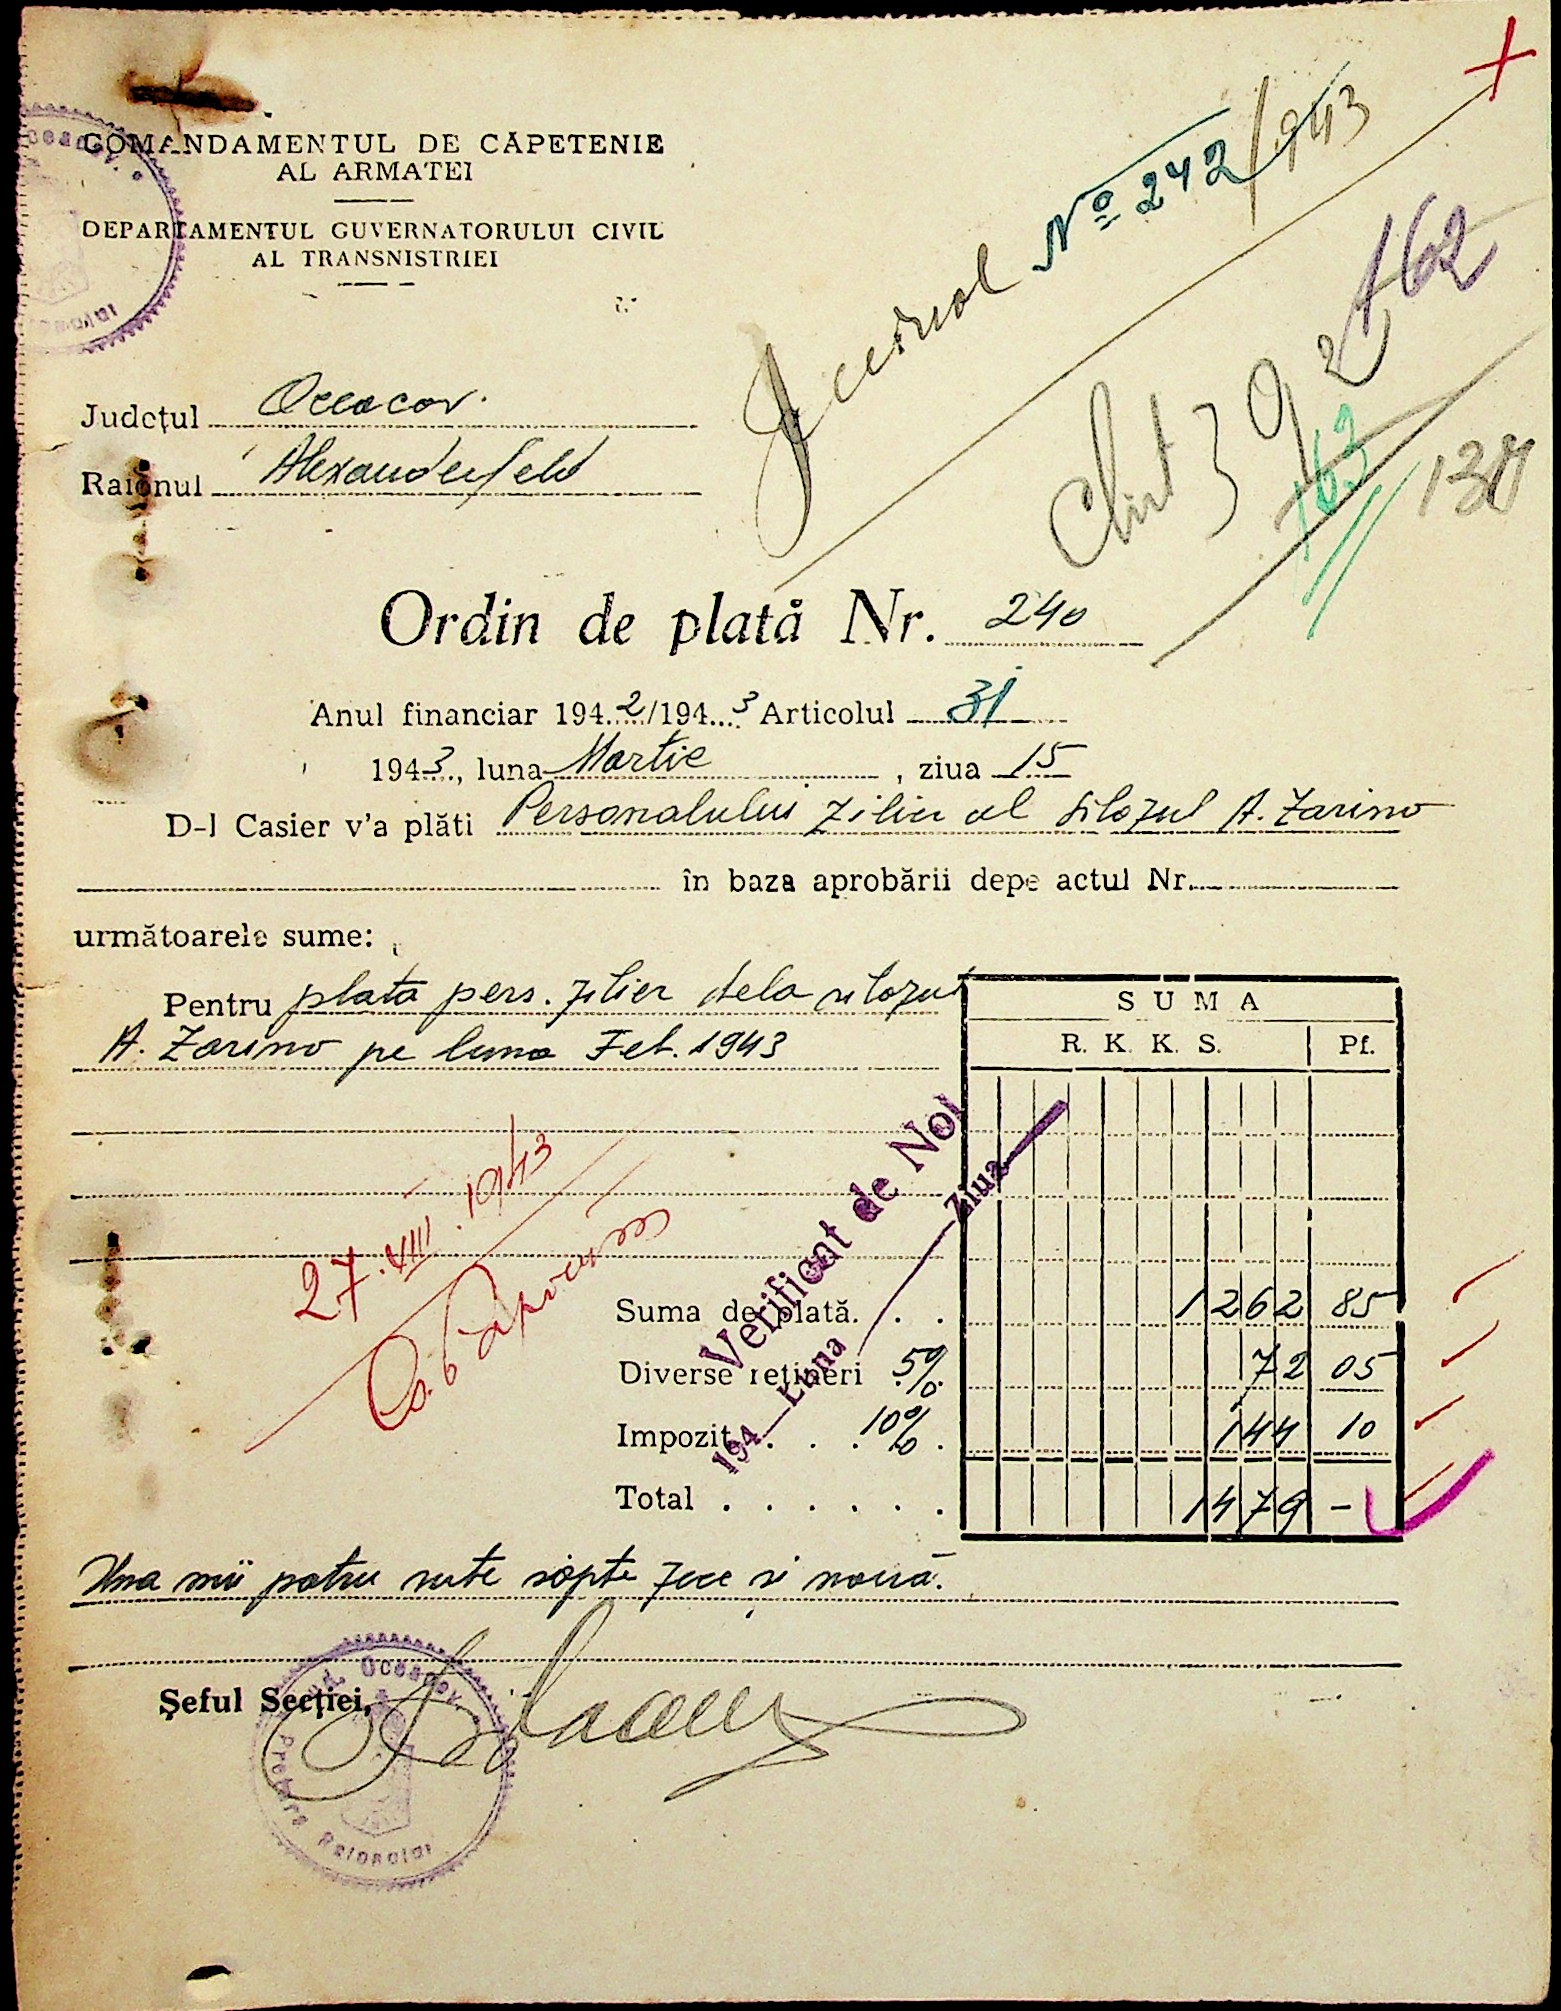 COMANDAMENTUL DE CĂPETENIE
AL ARMATEI
DEPARTAMENTUL GUVERNATORULUI CIVIL
AL TRANSNISTRIEI
Jurnal No 242/943
162
163
138
Județul Oceacov.
Raionul Alexanderfeld
Ordin de plată Nr. 240
Anul financiar 1942/1943 Articolul 31
1943, luna Martie, ziua 15
D-l Casier v'a plăti Personalului zilier al silozul A. Zarino
în baza aprobării depe actul Nr.
următoarele sume:
Pentru plata pers. zilier dela silozul
A. Zarino pe luna Feb. 1943
SUMA
R. K. K. S. Pf.
27.VIII.1943
Verificat de Noi
194 Luna Ziua
Suma de plată. . . 1262 85
Diverse rețineri 5% 72 05
Impozit . . . 10% . 144 10
Total . . . . . . 1479 -
Una mii patru sute șapte zece și nouă.
Șeful Secției,
Jud. Oceacov
Pretura Raionului